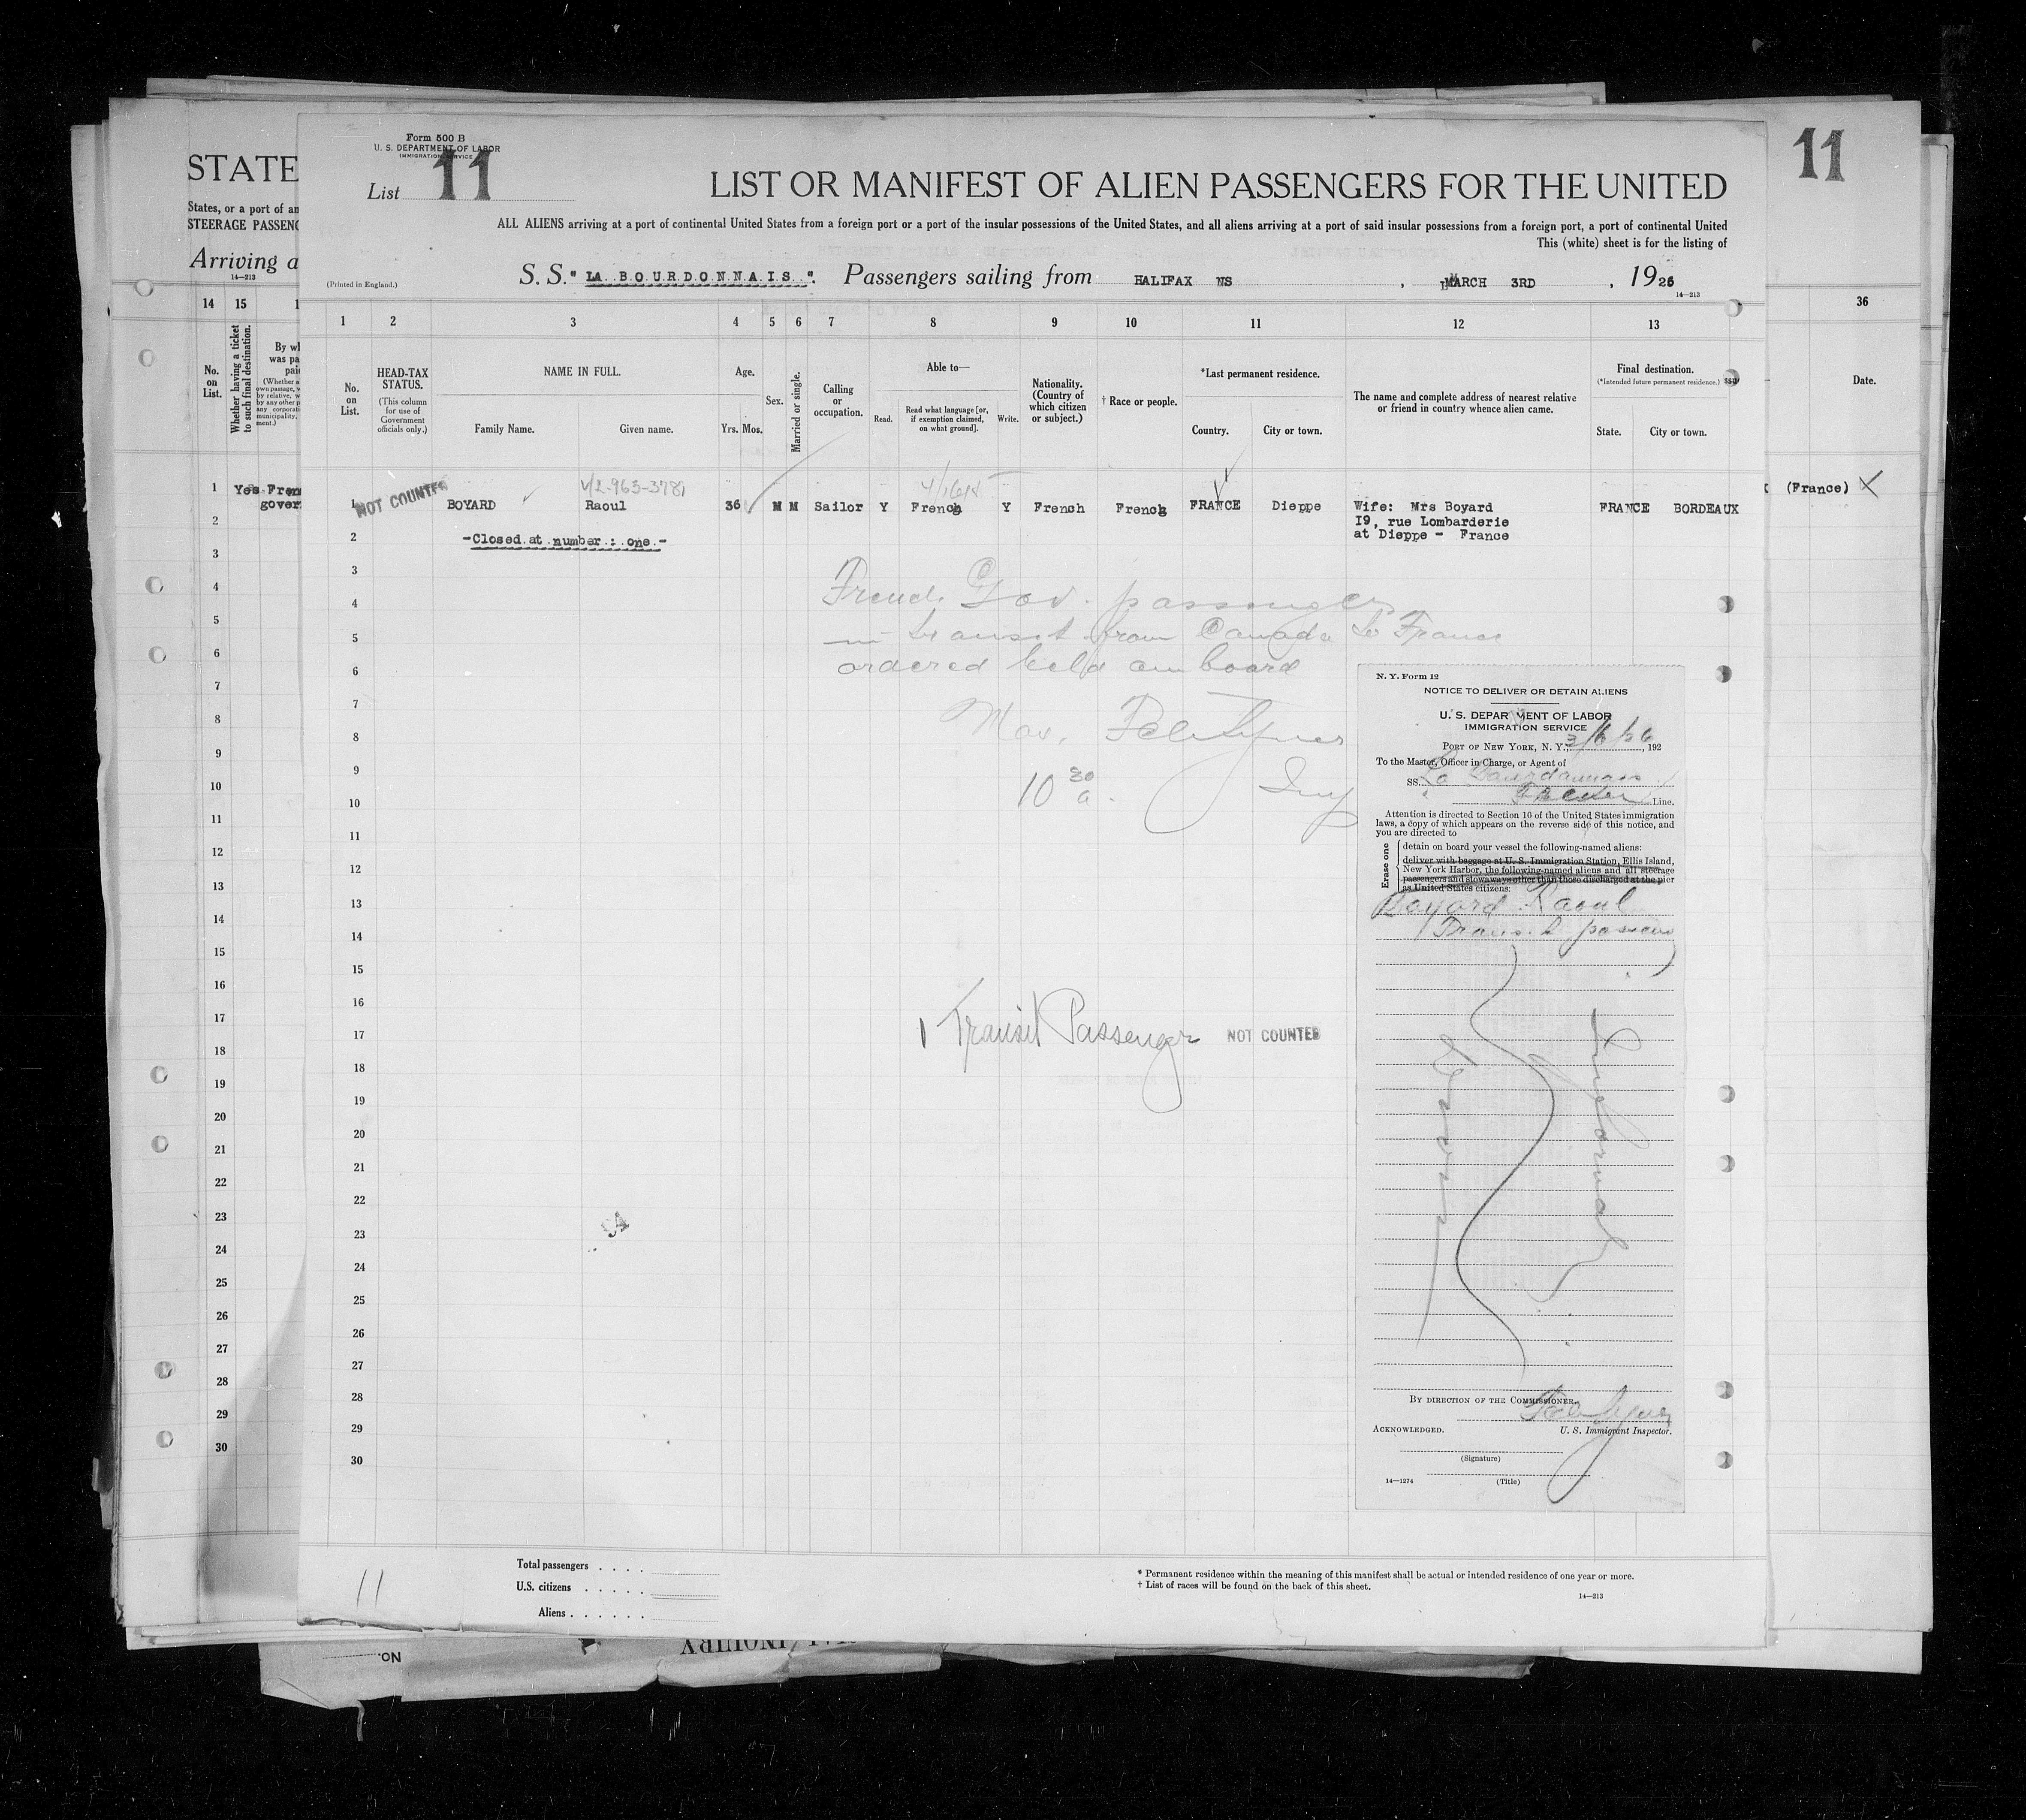 STATE
States, or a port of an
STEERAGE PASSENG
Arriving a
14—213
14 15 1
No. on List.
Whether having a ticket to such final destination.
By wh
was pa
paid
(Whether a
own passage, w
by relative, w
by any other p
any corporati
municipality,
ment.)
Yes Fren
gover
1
2
3
4
5
6
7
8
9
10
11
12
13
14
15
16
17
18
19
20
21
22
23
24
25
26
27
28
29
30
Form 500 B
U. S. DEPARTMENT OF LABOR
IMMIGRATION SERVICE
List 11
LIST OR MANIFEST OF ALIEN PASSENGERS FOR THE UNITED
ALL ALIENS arriving at a port of continental United States from a foreign port or a port of the insular possessions of the United States, and all aliens arriving at a port of said insular possessions from a foreign port, a port of continental United
This (white) sheet is for the listing of
(Printed in England.)
S. S. " LA BOURDONNAIS ". Passengers sailing from HALIFAX NS , MARCH 3RD , 1926
14—213
1 2 3 4 5 6 7 8 9 10 11 12 13
No. on List.
HEAD-TAX STATUS.
(This column for use of Government officials only.)
NAME IN FULL.
Family Name. Given name.
Age.
Yrs. Mos.
Sex.
Married or single.
Calling or occupation.
Able to—
Read. Read what language [or, if exemption claimed, on what ground]. Write.
Nationality. (Country of which citizen or subject.)
† Race or people.
*Last permanent residence.
Country. City or town.
The name and complete address of nearest relative or friend in country whence alien came.
Final destination.
(*Intended future permanent residence.)
State. City or town.
NOT COUNTED
V/2-963-3781
1 BOYARD Raoul 36 M M Sailor Y French Y French French FRANCE Dieppe Wife: Mrs Boyard FRANCE BORDEAUX
19, rue Lombarderie
at Dieppe - France
2 -Closed at number : one -
3
4
5
6
7
8
9
10
11
12
13
14
15
16
17
18
19
20
21
22
23
24
25
26
27
28
29
30
French Gov. passenger
in transit from Canada to France
ordered held on board
10 30 a.
Insp
1 Transit Passenger NOT COUNTED
N. Y. Form 12
NOTICE TO DELIVER OR DETAIN ALIENS
U. S. DEPARTMENT OF LABOR
IMMIGRATION SERVICE
PORT OF NEW YORK, N. Y., 3/6/26, 192
To the Master, Officer in Charge, or Agent of
SS. La Bourdonnais
French Line.
Attention is directed to Section 10 of the United States immigration
laws, a copy of which appears on the reverse side of this notice, and
you are directed to
Erase one
detain on board your vessel the following-named aliens:
deliver with baggage at U. S. Immigration Station, Ellis Island,
New York Harbor, the following-named aliens and all steerage
passengers and stowaways other than those discharged at the pier
as United States citizens:
Boyard Raoul
BY DIRECTION OF THE COMMISSIONER.
ACKNOWLEDGED. U. S. Immigrant Inspector.
(Signature)
14—1274 (Title)
11
Total passengers . . . .
U.S. citizens . . . . .
Aliens . . . . . .
* Permanent residence within the meaning of this manifest shall be actual or intended residence of one year or more.
† List of races will be found on the back of this sheet.
14—213
11
36
Date.
(France) X
INQUIRY
NO.